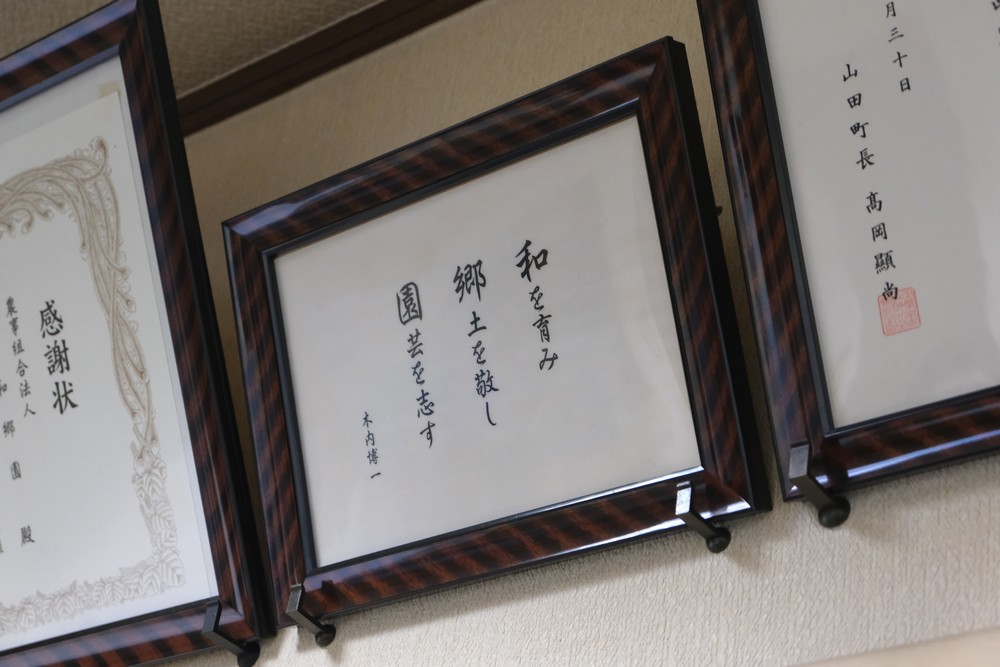 感謝状
農事組合法人
和郷園 殿
和を育み
郷土を敬し
園芸を志す
木内博一
月三十日
山田町長 髙岡顯尚